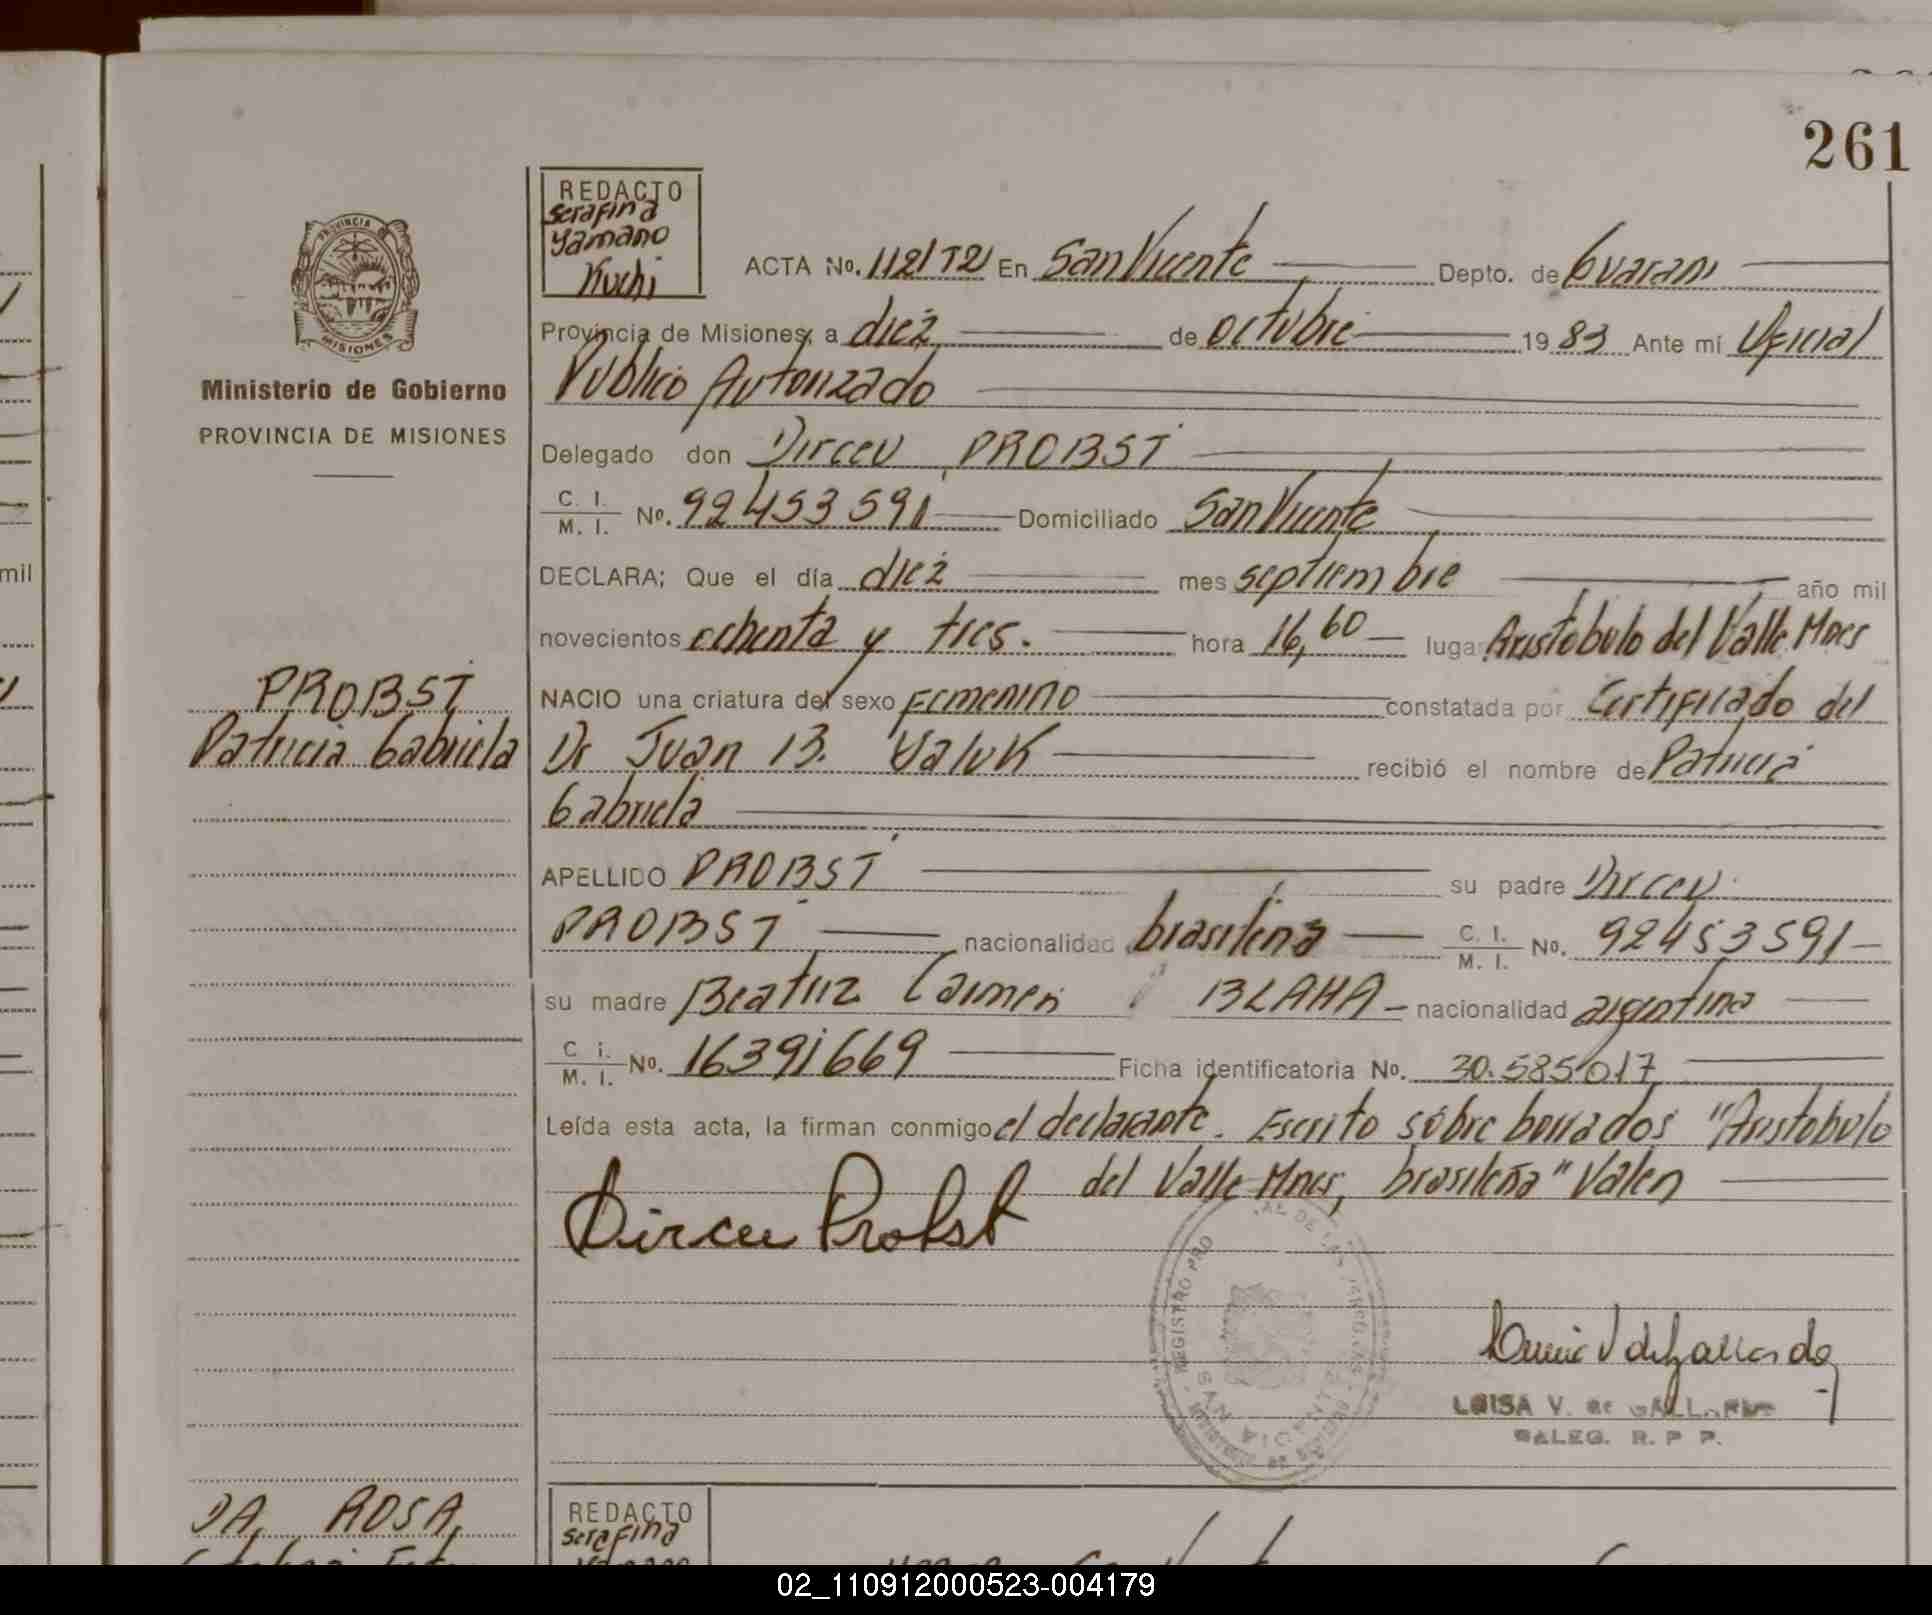 261
REDACTO
Serafina
Yamano
Kuchi
PROVINCIA
MISIONES
Ministerio de Gobierno
PROVINCIA DE MISIONES
ACTA No. 1121 T2 En San Vicente Depto. de Guarani
Provincia de Misiones; a diez de octubre 1983 Ante mí Oficial
Publico Autorizado
Delegado don Dirceu PROBST
C. I. / M. I. No. 92453591 Domiciliado San Vicente
DECLARA; Que el día diez mes septiembre año mil
novecientos ochenta y tres. hora 16,60 lugar Aristobulo del Valle Mnes
PROBST
Patricia Gabriela
NACIO una criatura del sexo femenino constatada por Certificado del
Dr Juan B. Valuk recibió el nombre de Patricia
Gabriela
APELLIDO PROBST su padre Dirceu
PROBST nacionalidad brasileña C. I. / M. I. No. 92453591
su madre Beatriz Carmen BLAHA nacionalidad argentina
C i. / M. I. No. 16391669 Ficha identificatoria No. 30.585.017
Leída esta acta, la firman conmigo el declarante. Escrito sobre borrados "Aristobulo
del Valle Mnes, brasileña" Valen
Dirceu Probst
REGISTRO PRO AL DE LAS
LUISA V. de GALLARDO
R. P P.
DA ROSA
REDACTO
Serafina
mil
02_110912000523-004179